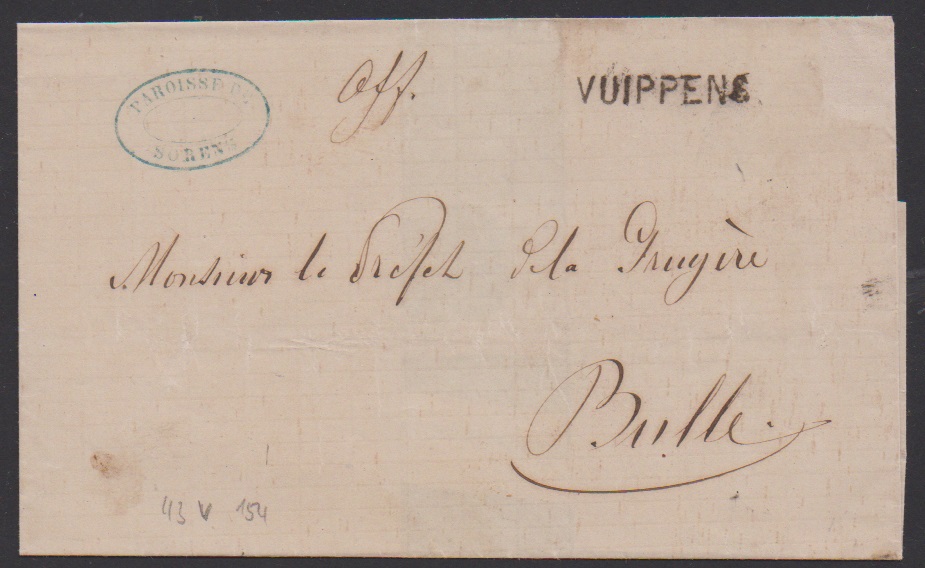 PAROISSE DE
SORENS
Off.
VUIPPENS
Monsieur le Préfet de la Gruyère
Bulle.
43 V 154